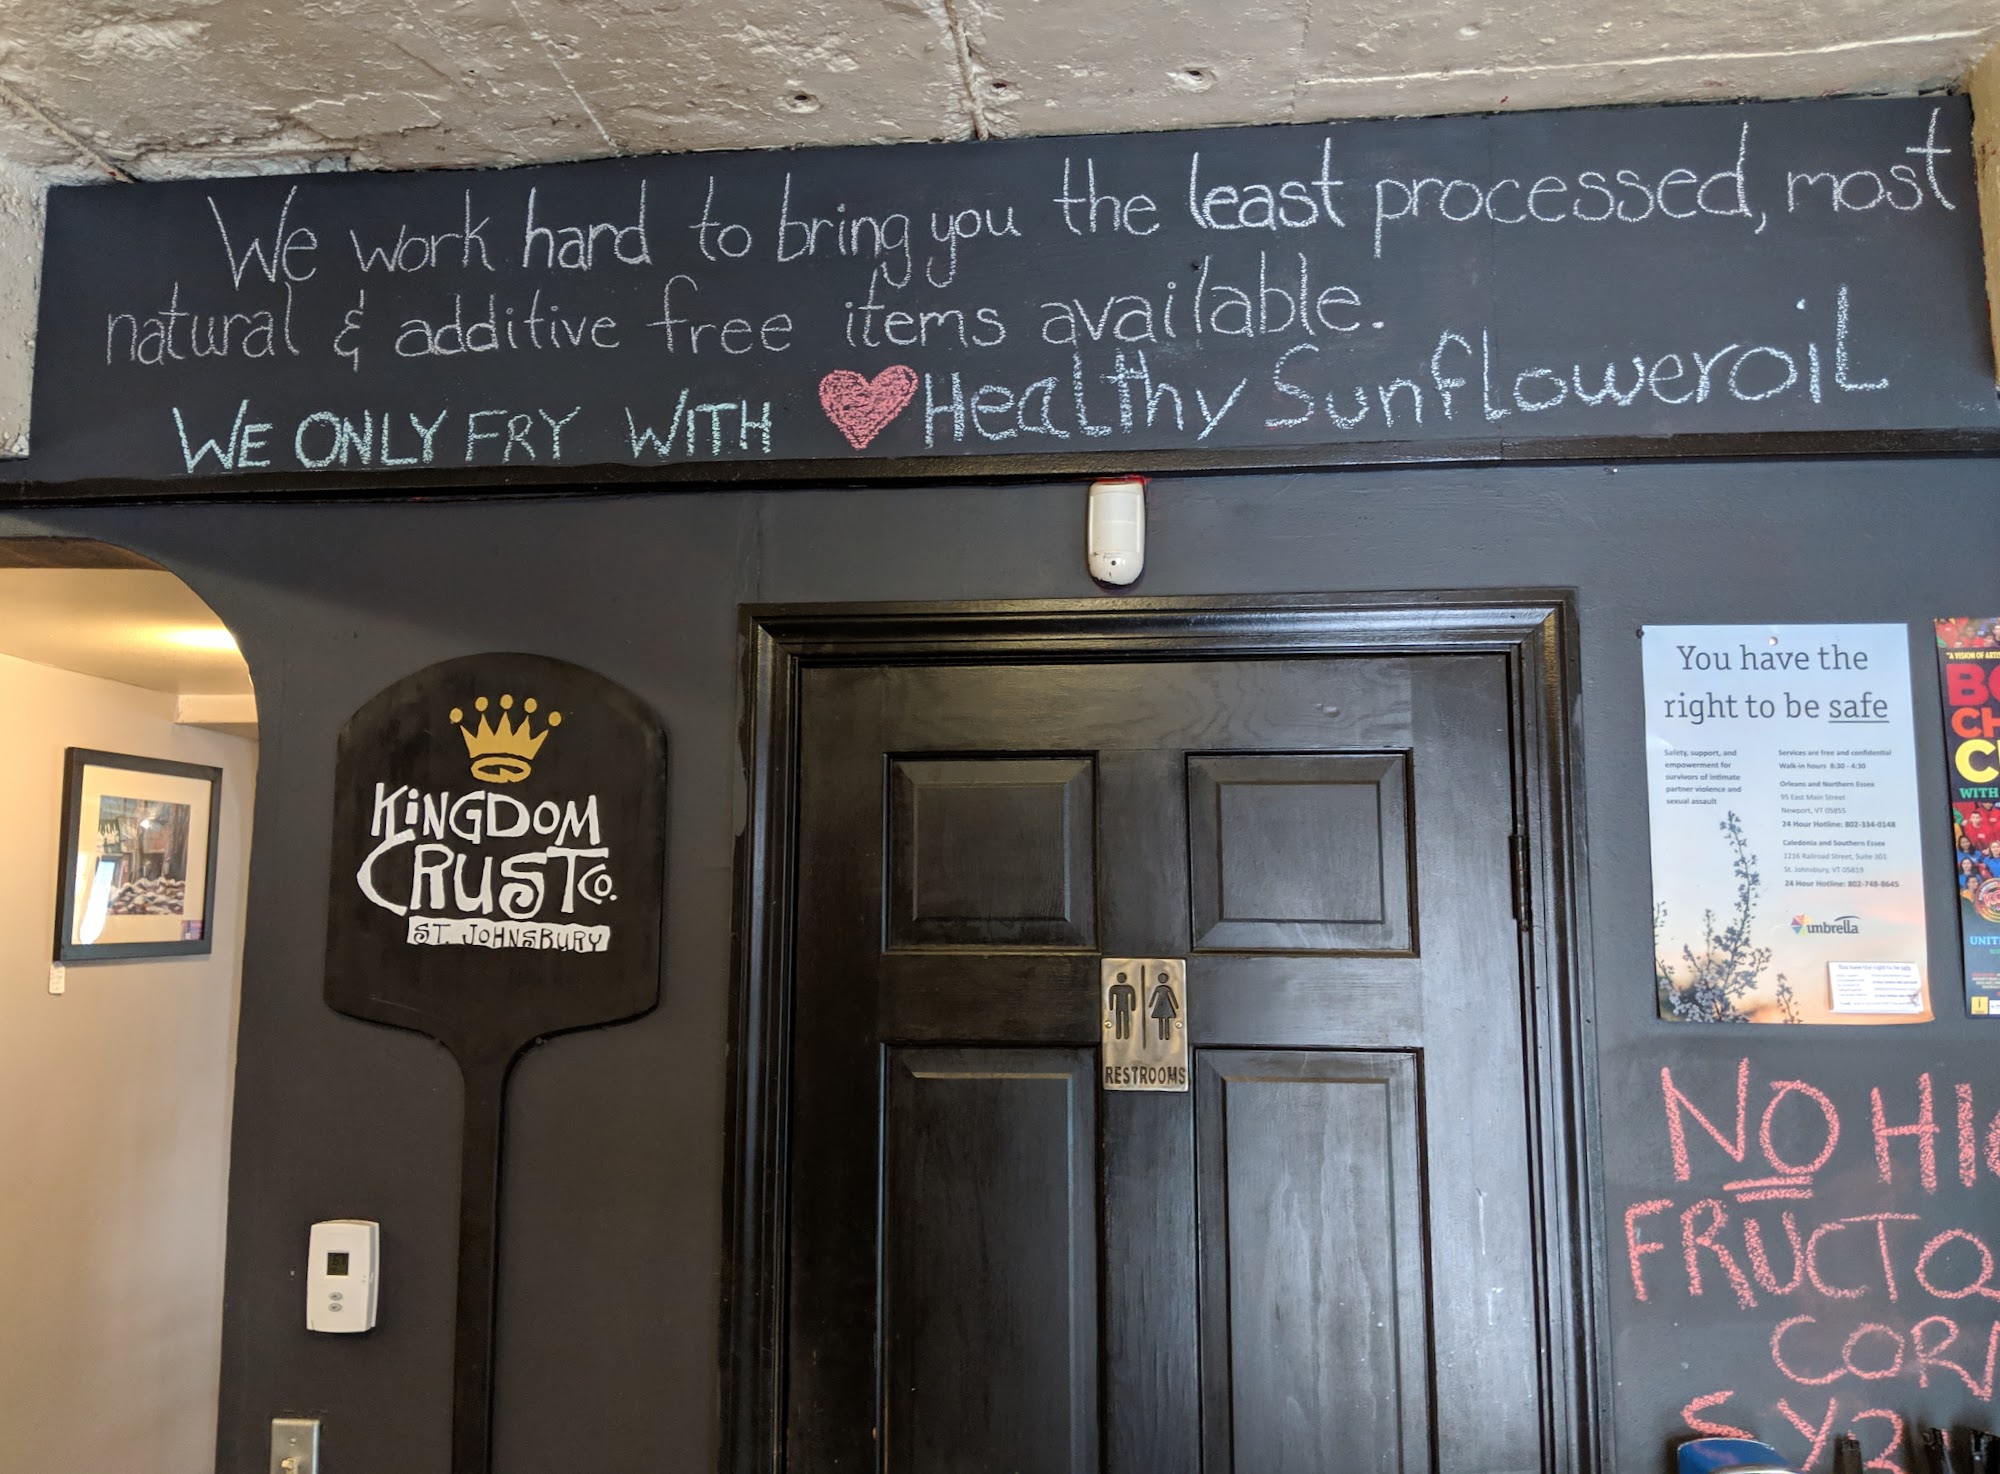 We work hard to bring you the least processed, most
natural & additive free items available.
WE ONLY FRY WITH ♥ Healthy Sunfloweroil
KiNGDOM
CRUST Co.
ST. JOHNSBURY
RESTROOMS
You have the
right to be safe
Safety, support, and
empowerment for
survivors of intimate
partner violence and
sexual assault
Services are free and confidential
Walk-in hours 8:30 - 4:30
Orleans and Northern Essex
95 East Main Street
Newport, VT 05855
24 Hour Hotline: 802-334-0148
Caledonia and Southern Essex
1216 Railroad Street, Suite 301
St. Johnsbury, VT 05819
24 Hour Hotline: 802-748-8645
umbrella
You have the right to be safe
"A VISION OF
CH
WITH
UNIT
NO HI
FRUCTO
CORN
SYR